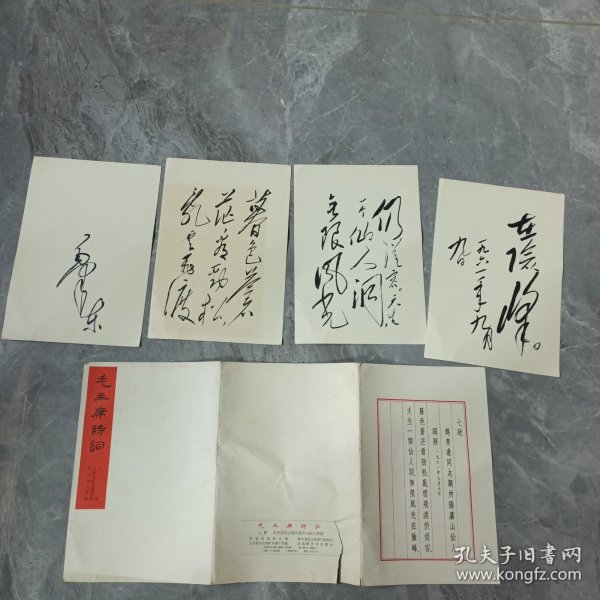 毛泽东
暮色蒼
茫看劲松
亂云飛渡
仍從容。天生
一个仙人洞
无限風光
在险峰。
一九六一年九月
九日
毛主席詩詞
毛主席詩詞
七絕
為李進同志題所攝廬山仙人
洞照 一九六一年九月九日
暮色蒼茫看勁松,亂雲飛渡仍從容。
天生一個仙人洞,無限風光在險峰。
孔夫子旧书网
kongfz.com